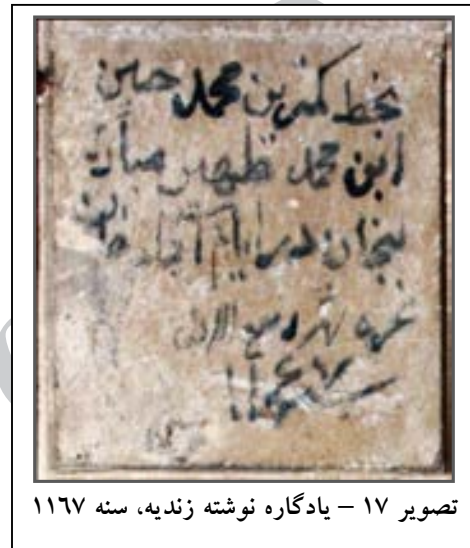 بخط کمترین محمد حسین
ابن محمد ظهیر
لنجان در ایام
غره شهر ربیع الاول
سنه ۱۱۶۷
تصویر ۱۷ – یادگاره نوشته زندیه، سنه ۱۱٦۷